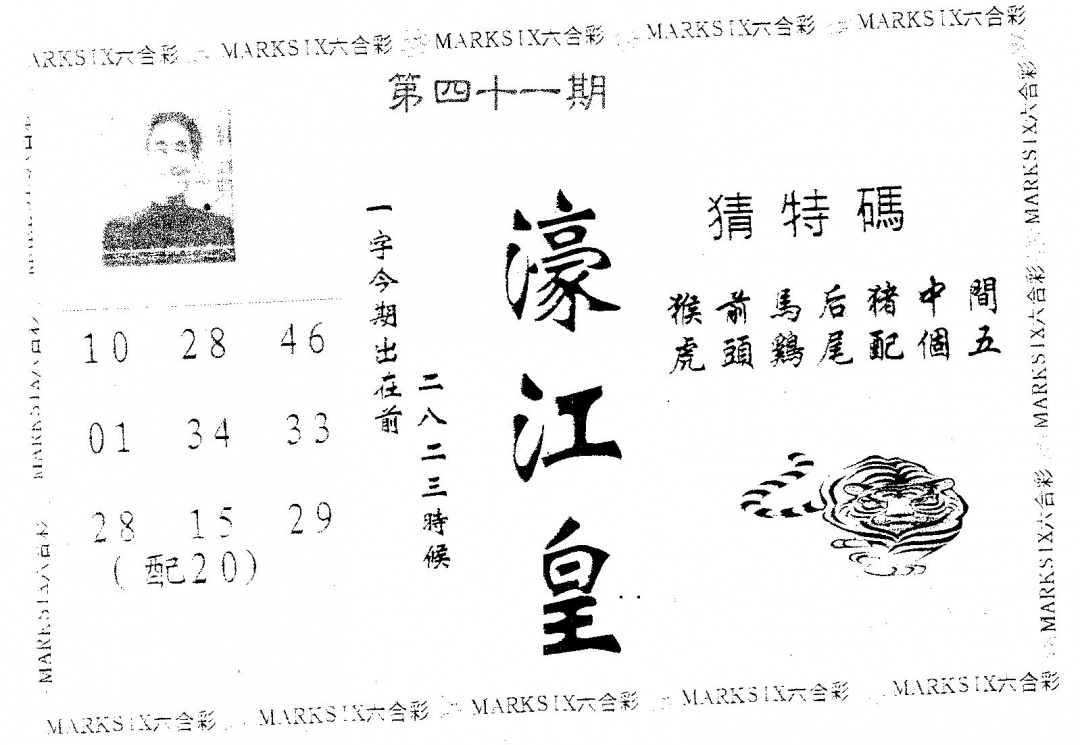 MARKSIX六合彩 MARKSIX六合彩 MARKSIX六合彩 MARKSIX六合彩 MARKSIX六合彩
第四十一期
10 28 46
01 34 33
28 15 29
(配20)
一字今期出在前
二八二三時候
濠江皇
猜特碼
猴前馬后豬中間
虎頭鷄尾配個五
MARKSIX六合彩
MARKSIX六合彩
MARKSIX六合彩
MARKSIX六合彩
MARKSIX六合彩
MARKSIX六合彩 MARKSIX六合彩 MARKSIX六合彩 MARKSIX六合彩 MARKSIX六合彩